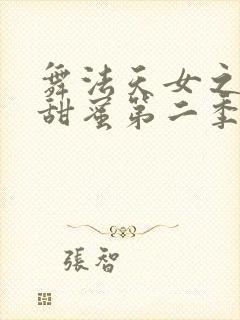 舞法天女之
甜蜜第二季
張智